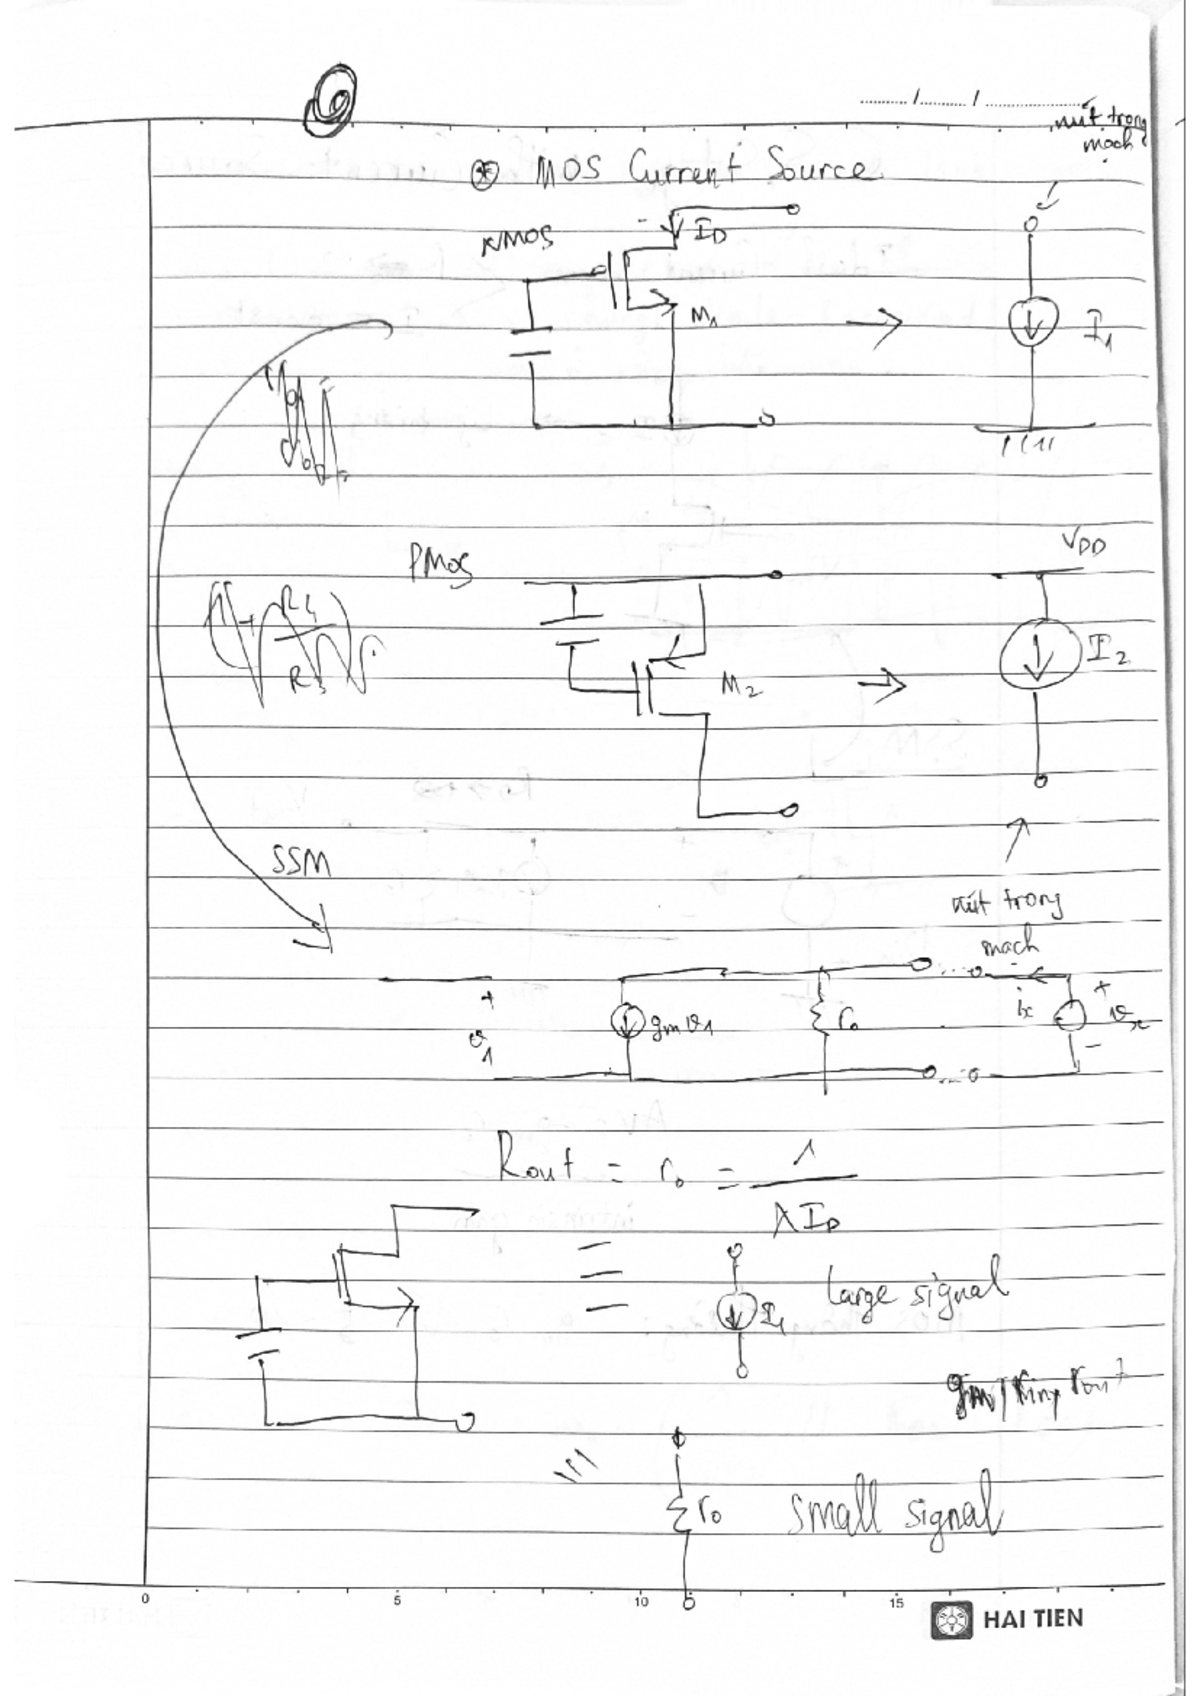 6
nút trong
mạch
⊛ MOS Current Source
NMOS
I_D
M1
I1
VDD
PMOS
R4
R3
M2
I2
SSM
nút trong
mạch
+
v1
gmv1
ro
ix
+
vx
-
Rout = ro = 1 / λI_D
I1
large signal
ro
small signal
0 5 10 15
HAI TIEN